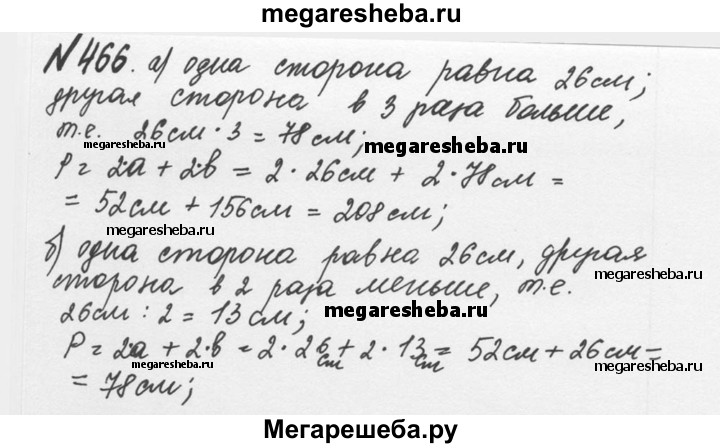 megaresheba.ru
№466. а) одна сторона равна 26см;
другая сторона в 3 раза больше,
т.е. 26см · 3 = 78см;
megaresheba.ru
P = 2·a + 2·b = 2 · 26см + 2 · 78см =
= 52см + 156см = 208см;
megaresheba.ru
б) одна сторона равна 26см, другая
megaresheba.ru
сторона в 2 раза меньше, т.е.
26см : 2 = 13см;
megaresheba.ru
P = 2·a + 2·b = 2 · 26см + 2 · 13см = 52см + 26см =
megaresheba.ru
megaresheba.ru
= 78см;
Мегарешеба.ру